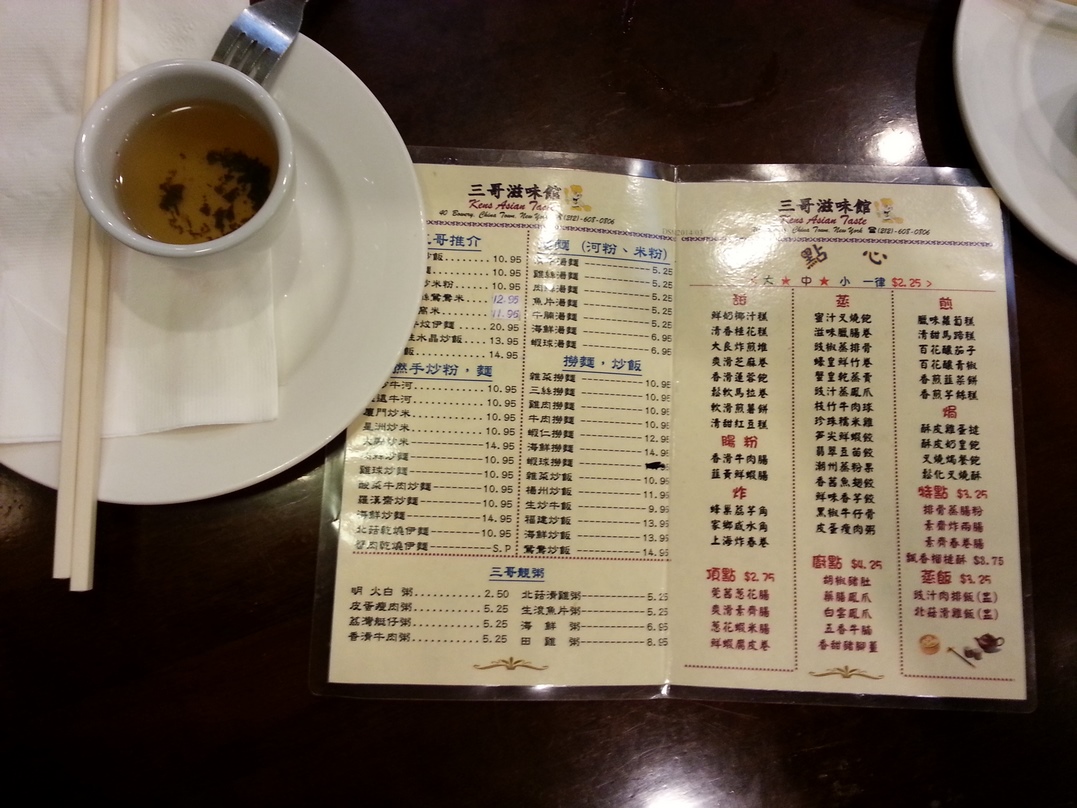 三哥滋味館
Kens Asian Taste
40 Bowery, China Town, New York ☎(212)-608-0806
哥推介
飯........ 10.95
麵........ 10.95
炒米粉.... 10.95
絲鴛鴦米... 12.95
窩米.... 11.95
炆伊麵.... 20.95
水晶炒飯... 13.95
飯........ 14.95
撚手炒粉，麵
牛河 10.95
牛河 10.95
廈門炒米 10.95
星洲炒米 10.95
炒米 14.95
炒麵 10.95
雞球炒麵 10.95
酸菜牛肉炒麵 10.95
羅漢齋炒麵 10.95
海鮮炒麵 14.95
北菇乾燒伊麵 10.95
乾燒伊麵 S.P
麵 (河粉、米粉)
湯麵 5.25
雞絲湯麵 5.25
湯麵 5.25
魚片湯麵 5.25
牛腩湯麵 5.25
海鮮湯麵 6.95
蝦球湯麵 6.95
撈麵，炒飯
雜菜撈麵 10.95
三絲撈麵 10.95
雞肉撈麵 10.95
牛肉撈麵 10.95
蝦仁撈麵 12.95
海鮮撈麵 14.95
蝦球撈麵
雜菜炒飯 10.95
楊州炒飯 11.95
生炒牛飯 9.95
福建炒飯 13.95
海鮮炒飯 13.95
鴛鴦炒飯 14.95
三哥靚粥
明火白粥 2.50
皮蛋瘦肉粥 5.25
荔灣艇仔粥 5.25
香滑牛肉粥 5.25
北菇滑雞粥 5.25
生滾魚片粥 5.25
海鮮粥 6.95
田雞粥 8.95
三哥滋味館
Kens Asian Taste
China Town, New York ☎(212)-608-0806
點心
大 ★ 中 ★ 小 一律 $2.25 >
甜
鮮奶椰汁糕
清香桂花糕
大良炸煎堆
爽滑芝麻卷
香滑蓮蓉飽
鬆軟馬拉卷
軟滑煎薯餅
清甜紅豆糕
腸粉
香滑牛肉腸
韮黃鮮蝦腸
炸
蜂巢荔芋角
家鄉咸水角
上海炸春卷
頂點 $2.75
蔥花腸
爽滑素齊腸
蔥花蝦米腸
鮮蝦腐皮卷
蒸
蜜汁叉燒飽
滋味臘腸卷
豉椒蒸排骨
蠔皇鮮竹卷
蟹皇乾蒸賣
豉汁蒸鳳爪
枝竹牛肉球
珍珠糯米雞
筍尖鮮蝦餃
翡翠豆苗餃
潮州蒸粉果
香茜魚翅餃
鮮味香芋餃
黑椒牛仔骨
皮蛋瘦肉粥
廚點 $4.25
胡椒豬肚
藥膳鳳爪
白雲鳳爪
五香牛腩
香甜豬腳薑
煎
臘味蘿蔔糕
清甜馬蹄糕
百花釀茄子
百花釀青椒
香煎韮菜餅
香煎芋絲糕
焗
酥皮雞蛋撻
酥皮奶皇飽
叉燒焗餐飽
鬆化叉燒酥
特點 $3.25
排骨蒸腸粉
素齋炸兩腸
素齊春卷腸
飄香榴槤酥 $3.75
蒸飯 $3.25
豉汁肉排飯(盅)
北菇滑雞飯(盅)